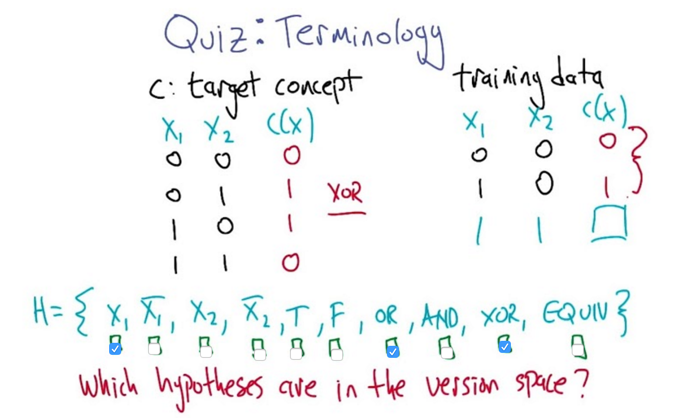 Quiz: Terminology
c: target concept
X₁ X₂ C(X)
0 0 0
0 1 1 XOR
1 0 1
1 1 0
training data
X₁ X₂ C(X)
0 0 0
1 0 1
1 1
H = { X₁, X̅₁, X₂, X̅₂, T, F, OR, AND, XOR, EQUIV }
Which hypotheses are in the version space?